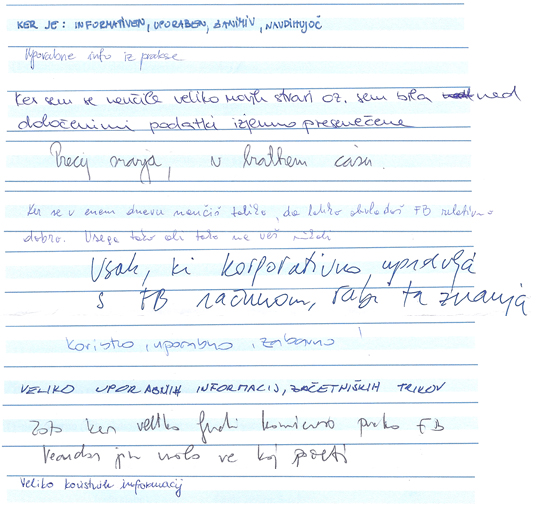 KER JE: INFORMATIVEN, UPORABEN, ZANIMIV, NAVDIHUJOČ
Uporabne info iz prakse
Ker sem se naučila veliko novih stvari oz. sem bila nad
določenimi podatki izjemno presenečena
Precej znanja, v kratkem času.
Ker se v enem dnevu naučiš toliko, da lahko obvladaš FB relativno
dobro. Vsega tako ali tako ne veš nikoli
Vsak, ki korporativno upravlja
s FB računom, rabi ta znanja
Koristno, uporabno, zabavno!
VELIKO UPORABNIH INFORMACIJ, ZAČETNIŠKIH TRIKOV
Zato ker veliko ljudi komunicira preko FB
Vendar jih malo ve kaj početi
Veliko koristnih informacij